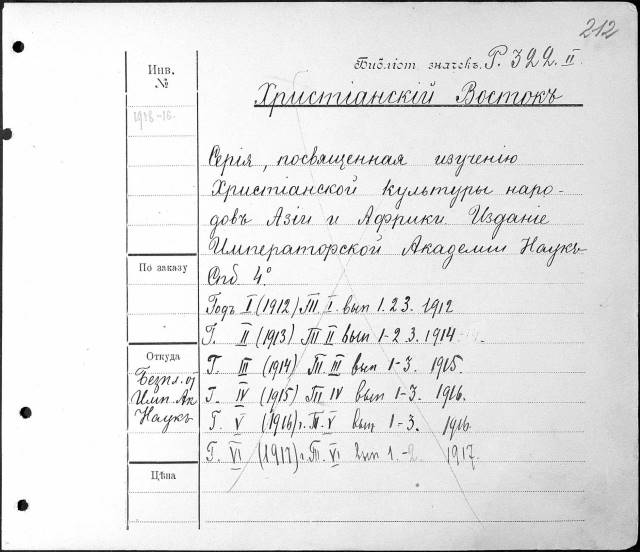 212
Библіот. значекъ. Р. 322. II.
Христіанскій Востокъ
Инв.
№
1918-16.
Серія, посвященная изученію
Христіанской культуры наро-
довъ Азіи и Африки. Изданіе
Императорской Академіи Наукъ
Спб. 4°.
По заказу
Годъ I (1912) Т. I. вып 1. 2 3. 1912
Г. II (1913) Т. II вып 1-2 3. 1914
Г. III (1914) Т. III вып 1-3. 1915.
Г. IV (1915) Т. IV вып 1-3. 1916.
Г. V (1916) г. Т. V вып 1-3. 1916.
Г. VI (1917) г. Т. VI вып 1.-2 1917.
Откуда
Безпл. от
Имп. Ак
Наукъ
Цѣна